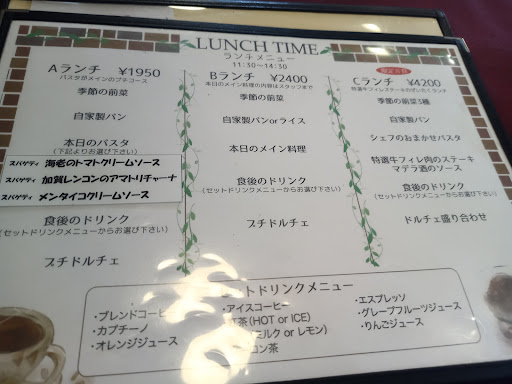 LUNCH TIME
ランチメニュー
11:30～14:30
Aランチ ¥1950
パスタがメインのプチコース
季節の前菜
自家製パン
本日のパスタ
(下記よりお選び下さい)
スパゲティ 海老のトマトクリームソース
スパゲティ 加賀レンコンのアマトリチャーナ
スパゲティ メンタイコクリームソース
食後のドリンク
(セットドリンクメニューからお選び下さい)
プチドルチェ
Bランチ ¥2400
本日のメイン料理の内容はスタッフまで
季節の前菜
自家製パンorライス
本日のメイン料理
食後のドリンク
(セットドリンクメニューからお選び下さい)
プチドルチェ
Cランチ ¥4200
特選牛フィレステーキの ランチ
季節の前菜3種
自家製パン
シェフのおまかせパスタ
特選牛フィレ肉のステーキ
マデラ酒のソース
食後のドリンク
(セットドリンクメニューからお選び下さい)
ドルチェ盛り合わせ
ットドリンクメニュー
・ブレンドコーヒ
・カプチーノ
・オレンジジュース
・アイスコーヒー
茶(HOT or ICE)
ミルク or レモン)
コン茶
・エスプレッソ
・グレープフルーツジュース
・りんごジュース